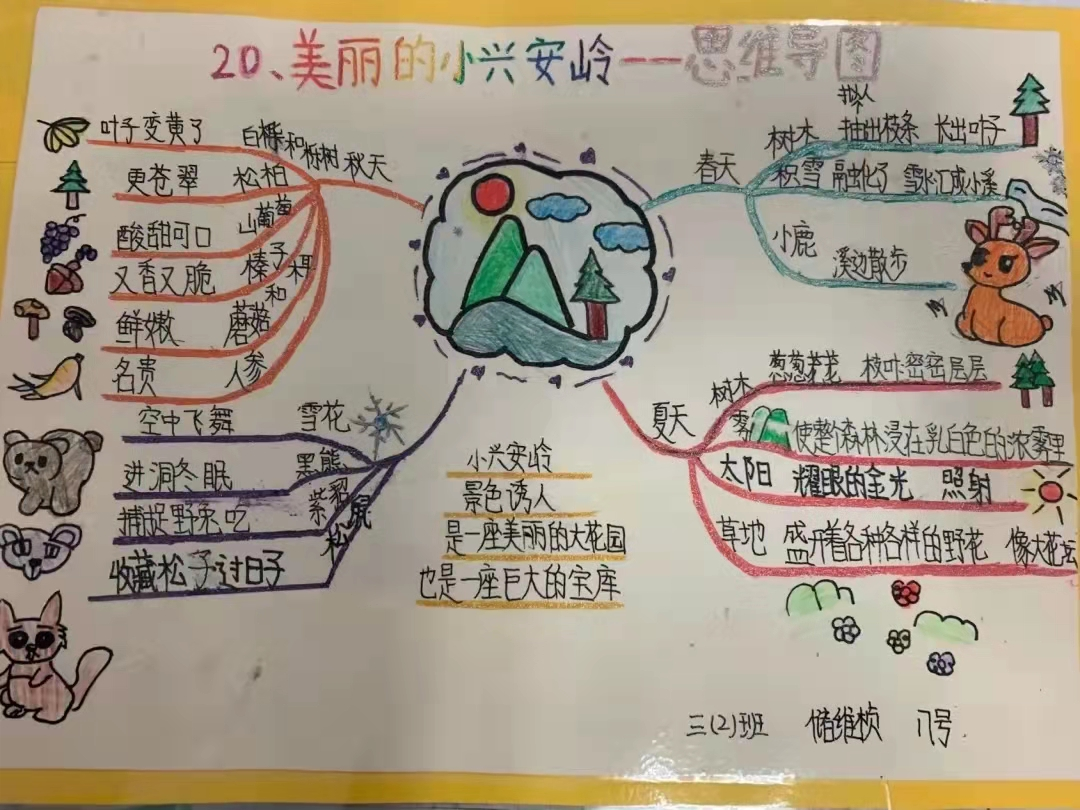 20、美丽的小兴安岭——思维导图
春天
树木 抽出枝条 长出叶子
拟人
积雪 融化了 雪水汇成小溪
小鹿 溪边散步
夏天
树木 葱葱茏茏 枝叶密密层层
雾 使整个森林浸在乳白色的浓雾里
太阳 耀眼的金光 照射
草地 盛开着各种各样的野花 像大花坛
秋天
白桦和栎树 叶子变黄了
松柏 更苍翠
山葡萄 酸甜可口
榛子 又香又脆
蘑菇 鲜嫩
人参 名贵
和
雪花 空中飞舞
黑熊 进洞冬眠
紫貂 捕捉野兔吃
松鼠 收藏松子过日子
小兴安岭
景色诱人
是一座美丽的大花园
也是一座巨大的宝库
三(2)班 储维桢 八号